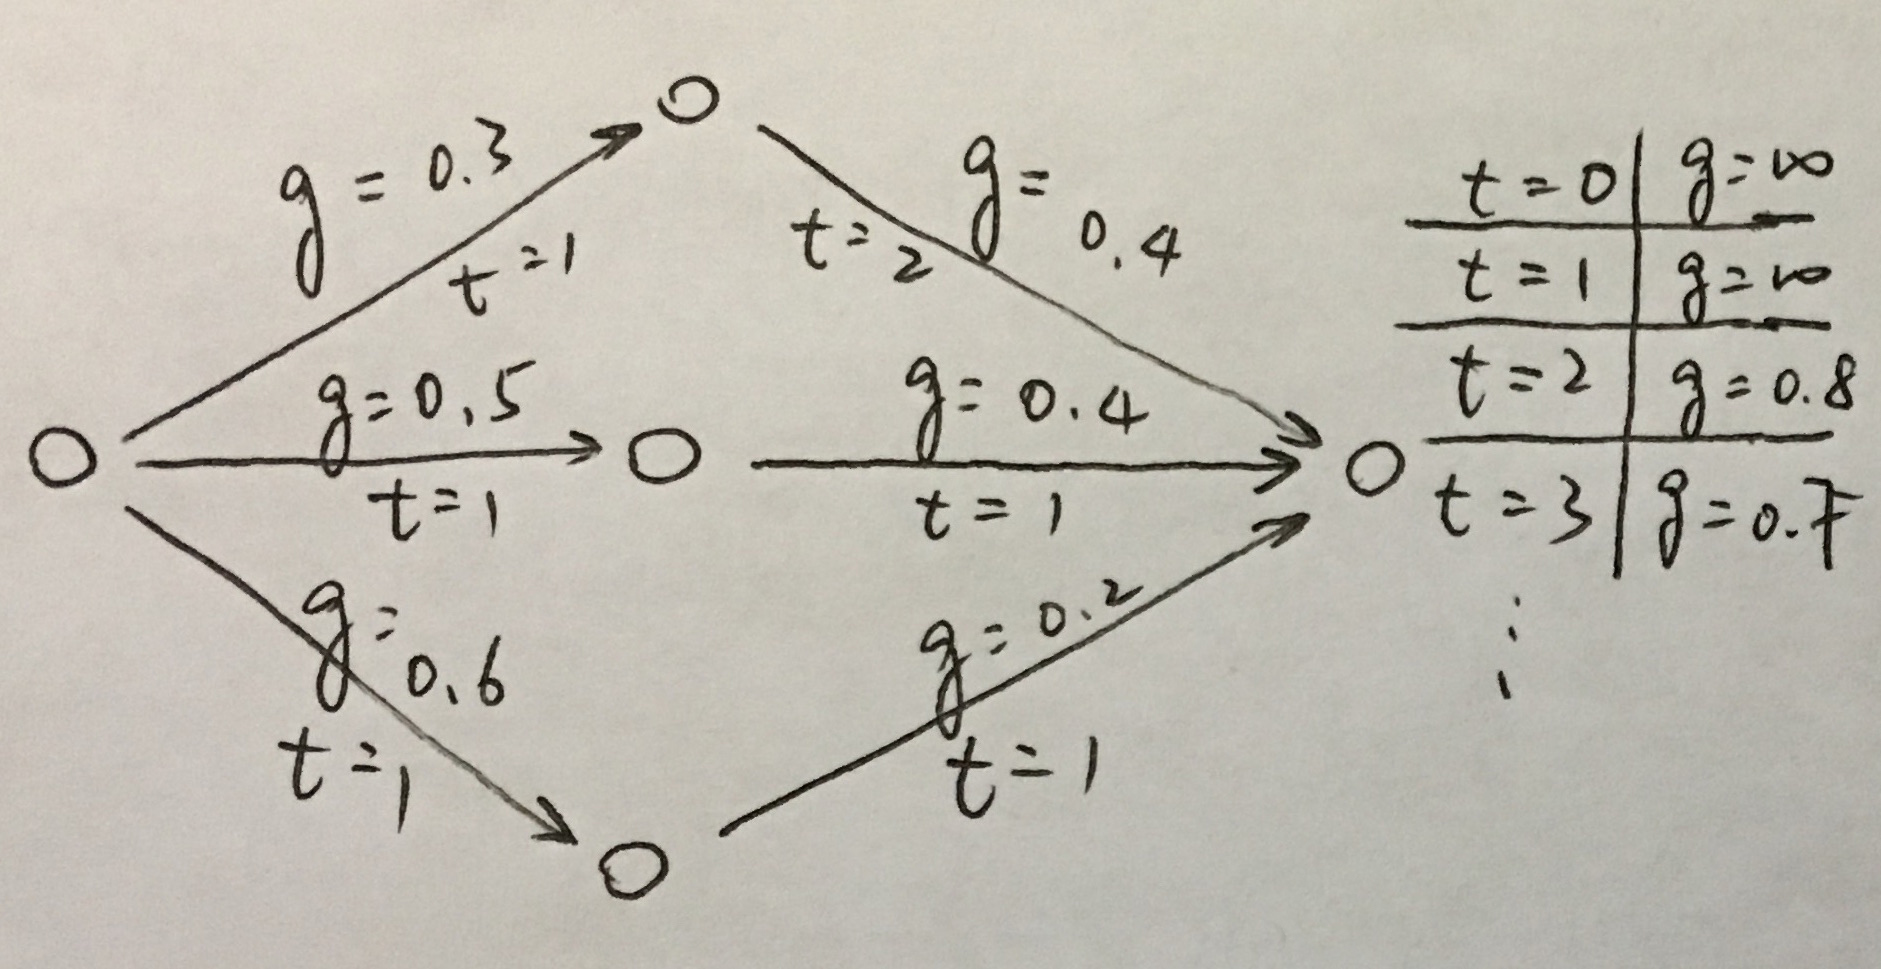 g = 0.3
t = 1
g = 0.4
t = 2
g = 0.5
t = 1
g = 0.4
t = 1
g = 0.6
t = 1
g = 0.2
t = 1
t = 0 | g = ∞
t = 1 | g = ∞
t = 2 | g = 0.8
t = 3 | g = 0.7
⋮